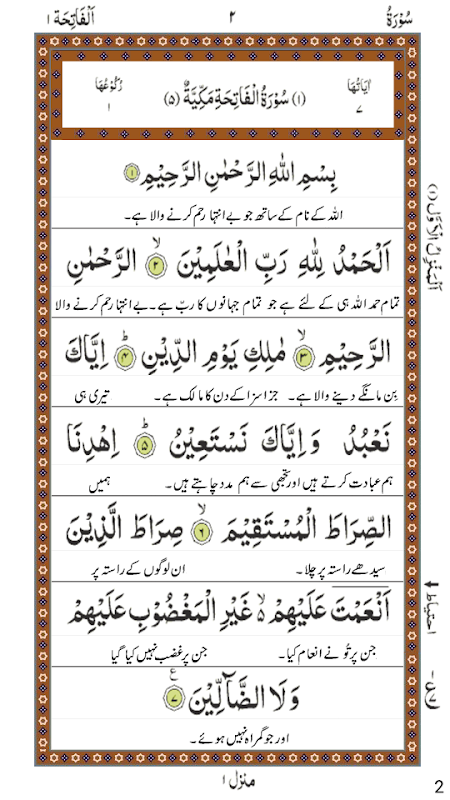 سُوْرَةُ ٢ اَلْفَاتِحَة ١
اٰيَاتُهَا ٧ (١) سُوْرَةُ الْفَاتِحَةِ مَكِّيَّةٌ (٥) رُكُوْعُهَا ١
بِسْمِ اللّٰهِ الرَّحْمٰنِ الرَّحِيْمِ ١
اللہ کے نام کے ساتھ جو بے انتہا رحم کرنے والا ہے۔
اَلْحَمْدُ لِلّٰهِ رَبِّ الْعٰلَمِيْنَ ۙ ٢ الرَّحْمٰنِ
تمام حمد اللہ ہی کے لئے ہے جو تمام جہانوں کا ربّ ہے۔ بے انتہا رحم کرنے والا
الرَّحِيْمِ ۙ ٣ مٰلِكِ يَوْمِ الدِّيْنِ ؕ ٤ اِيَّاكَ
بِن مانگے دینے والا ہے۔ جزا سزا کے دن کا مالک ہے۔ تیری ہی
نَعْبُدُ وَ اِيَّاكَ نَسْتَعِيْنُ ؕ ٥ اِهْدِنَا
ہم عبادت کرتے ہیں اور تجھی سے ہم مدد چاہتے ہیں۔ ہمیں
الصِّرَاطَ الْمُسْتَقِيْمَ ۙ ٦ صِرَاطَ الَّذِيْنَ
سیدھے راستہ پر چلا۔ ان لوگوں کے راستہ پر
اَنْعَمْتَ عَلَيْهِمْ ۙ۬ غَيْرِ الْمَغْضُوْبِ عَلَيْهِمْ
جن پر تُو نے انعام کیا۔ جن پر غضب نہیں کیا گیا
وَلَا الضَّآلِّيْنَ ٧ ع
اور جو گمراہ نہیں ہوئے۔
اَلْمَنْزِلُ الْاَوَّلُ (١)
احتیاط
منزل ١
2